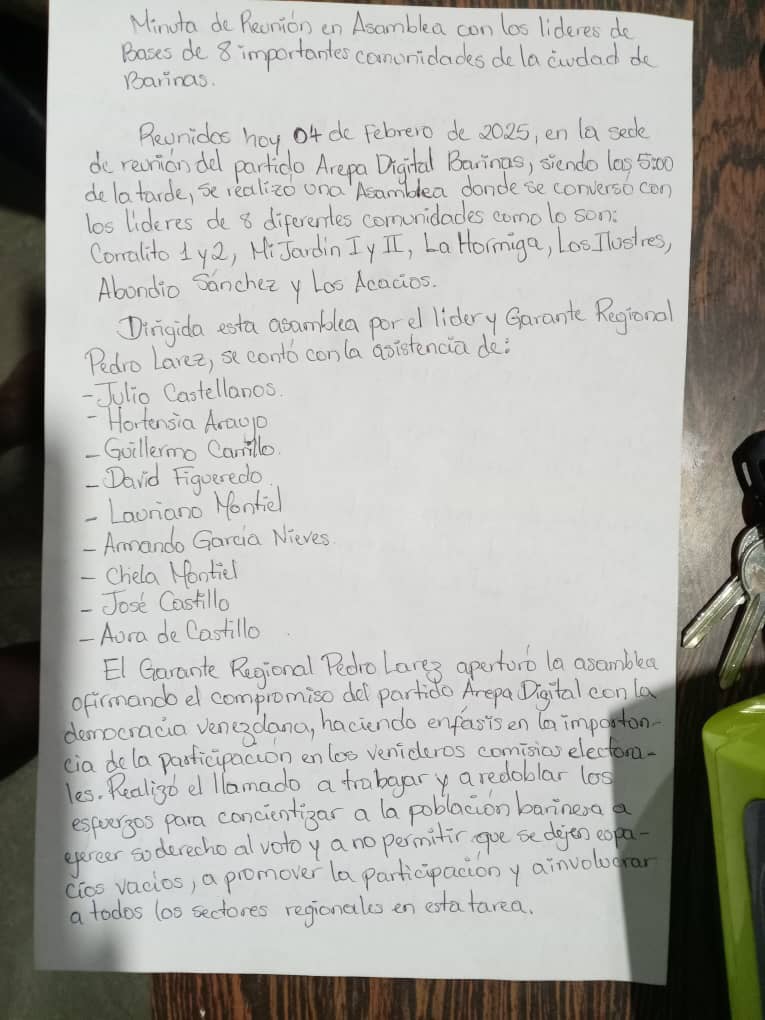 Minuta de Reunión en Asamblea con los lideres de
Bases de 8 importantes comunidades de la ciudad de
Barinas.
Reunidos hoy 04 de Febrero de 2025, en la sede
de reunión del partido Arepa Digital Barinas, siendo las 5:00
de la tarde, se realizó una Asamblea donde se conversó con
los lideres de 8 diferentes comunidades como lo son:
Corralito 1 y 2, Mi Jardin I y II, La Hormiga, Los Ilustres,
Abondio Sánchez y Los Acacios.
Dirigida esta asamblea por el lider y Garante Regional
Pedro Larez, se contó con la asistencia de:
- Julio Castellanos.
- Hortensia Araujo
- Guillermo Carrillo.
- David Figueredo.
- Lauriano Montiel
- Armando García Nieves.
- Chela Montiel
- José Castillo
- Aura de Castillo.
El Garante Regional Pedro Larez aperturó la asamblea
afirmando el compromiso del partido Arepa Digital con la
democracia venezolana, haciendo enfásis en la importan-
cia de la participación en los venideros comisios electora-
les. Realizó el llamado a trabajar y a redoblar los
esfuerzos para concientizar a la población barinesa a
ejercer su derecho al voto y a no permitir que se dejen espa-
cios vacios, a promover la participación y a involucrar
a todos los sectores regionales en esta tarea.